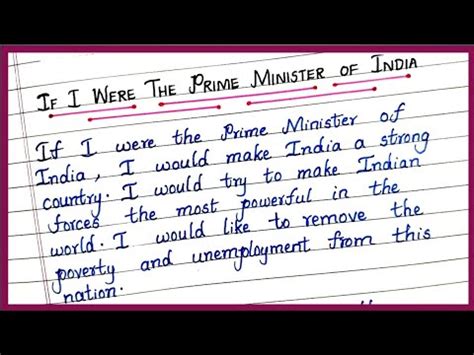 IF I WERE THE PRIME MINISTER OF INDIA
If I were the Prime Minister of
India, I would make India a strong
country. I would try to make Indian
forces the most powerful in the
world. I would like to remove the
poverty and unemployment from this
nation.